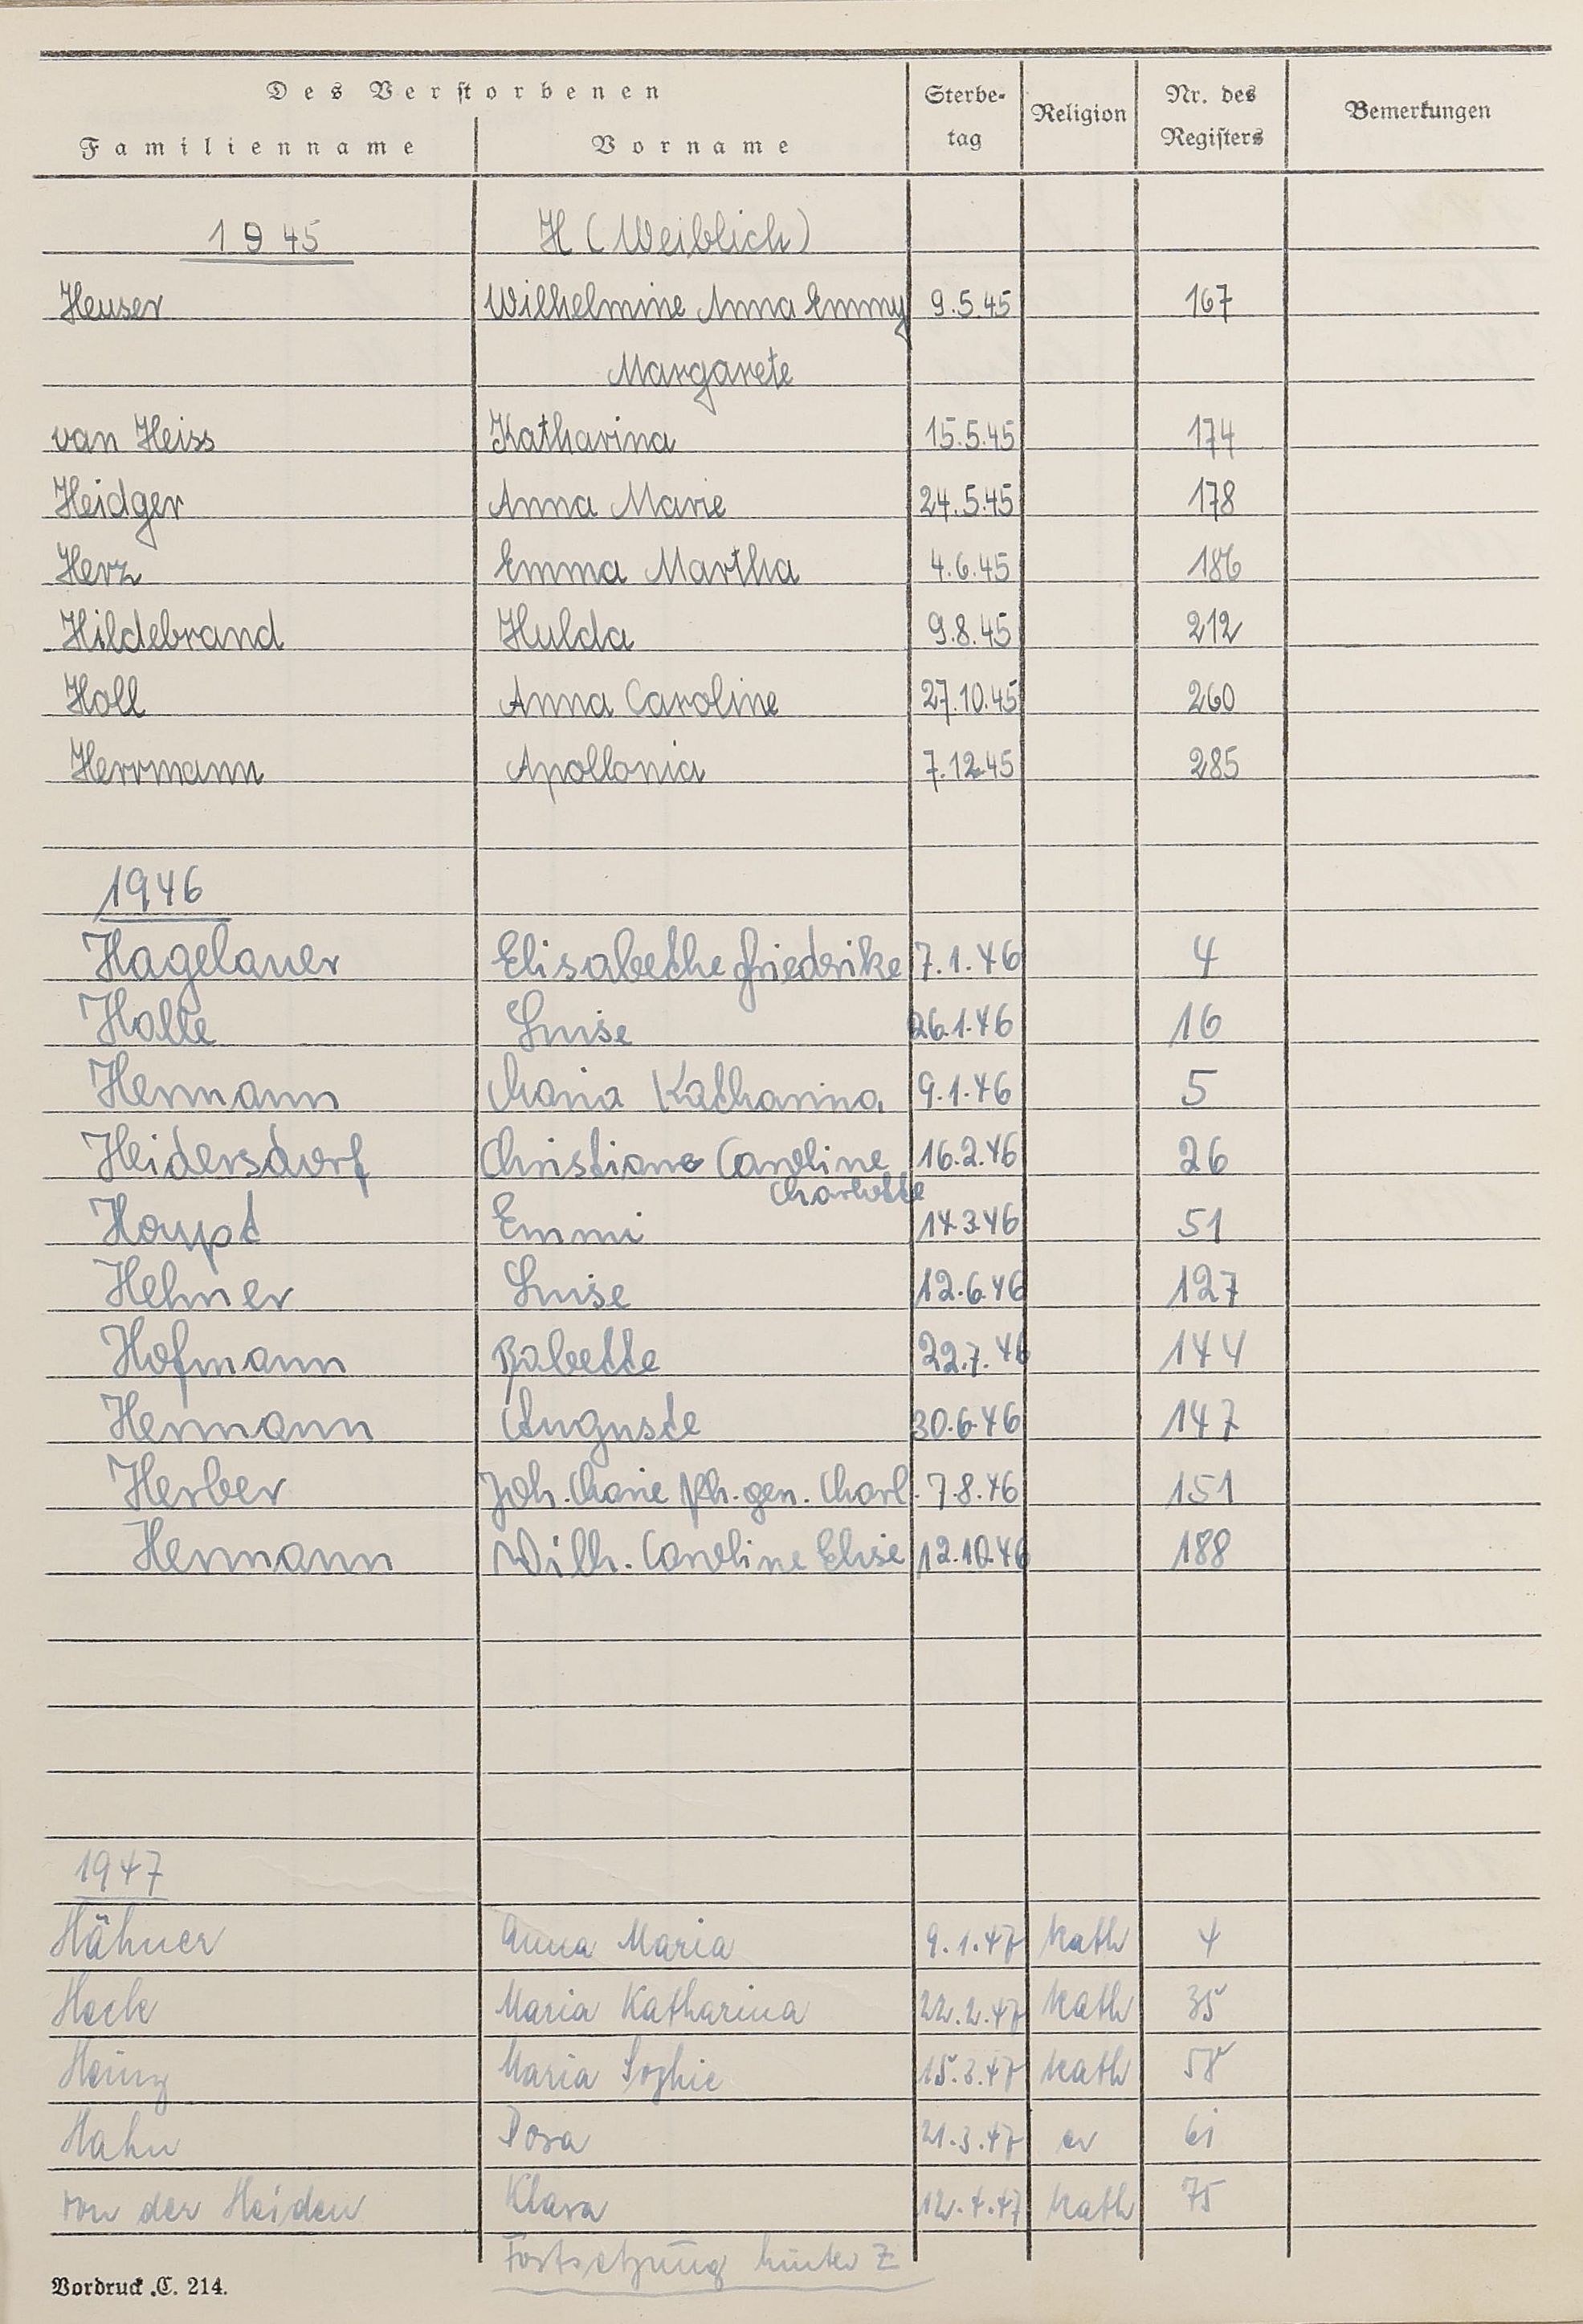 Des Verstorbenen
Familienname Vorname Sterbe-tag Religion Nr. des Registers Bemerkungen
1945 H (Weiblich)
Heuser Wilhelmine Anna Emmy 9.5.45 167
Margarete
van Heiss Katharina 15.5.45 174
Heidger Anna Marie 24.5.45 178
Herz Emma Martha 4.6.45 186
Hildebrand Hulda 9.8.45 212
Holl Anna Caroline 27.10.45 260
Herrmann Apollonia 7.12.45 285
1946
Hagelauer Elisabethe Friederike 7.1.46 4
Holle Luise 26.1.46 16
Hermann Maria Katharina 9.1.46 5
Heidersdorf Christiane Caroline 16.2.46 26
Charlotte
Haupt Emmi 14.3.46 51
Hehner Luise 12.6.46 127
Hofmann Babette 22.7.46 144
Hermann Auguste 30.6.46 147
Herber Joh. Marie Ph. gen. Charl. 7.8.46 151
Hermann Wilh. Caroline Elise 12.10.46 188
1947
Hähner Anna Maria 9.1.47 Kath 4
Heck Maria Katharina 22.2.47 Kath 35
Heinz Maria Sophie 15.3.47 Kath 58
Hahn Dora 21.3.47 ev 61
von der Heiden Klara 12.4.47 Kath 75
Fortsetzung hinter Z
Vordruck C. 214.